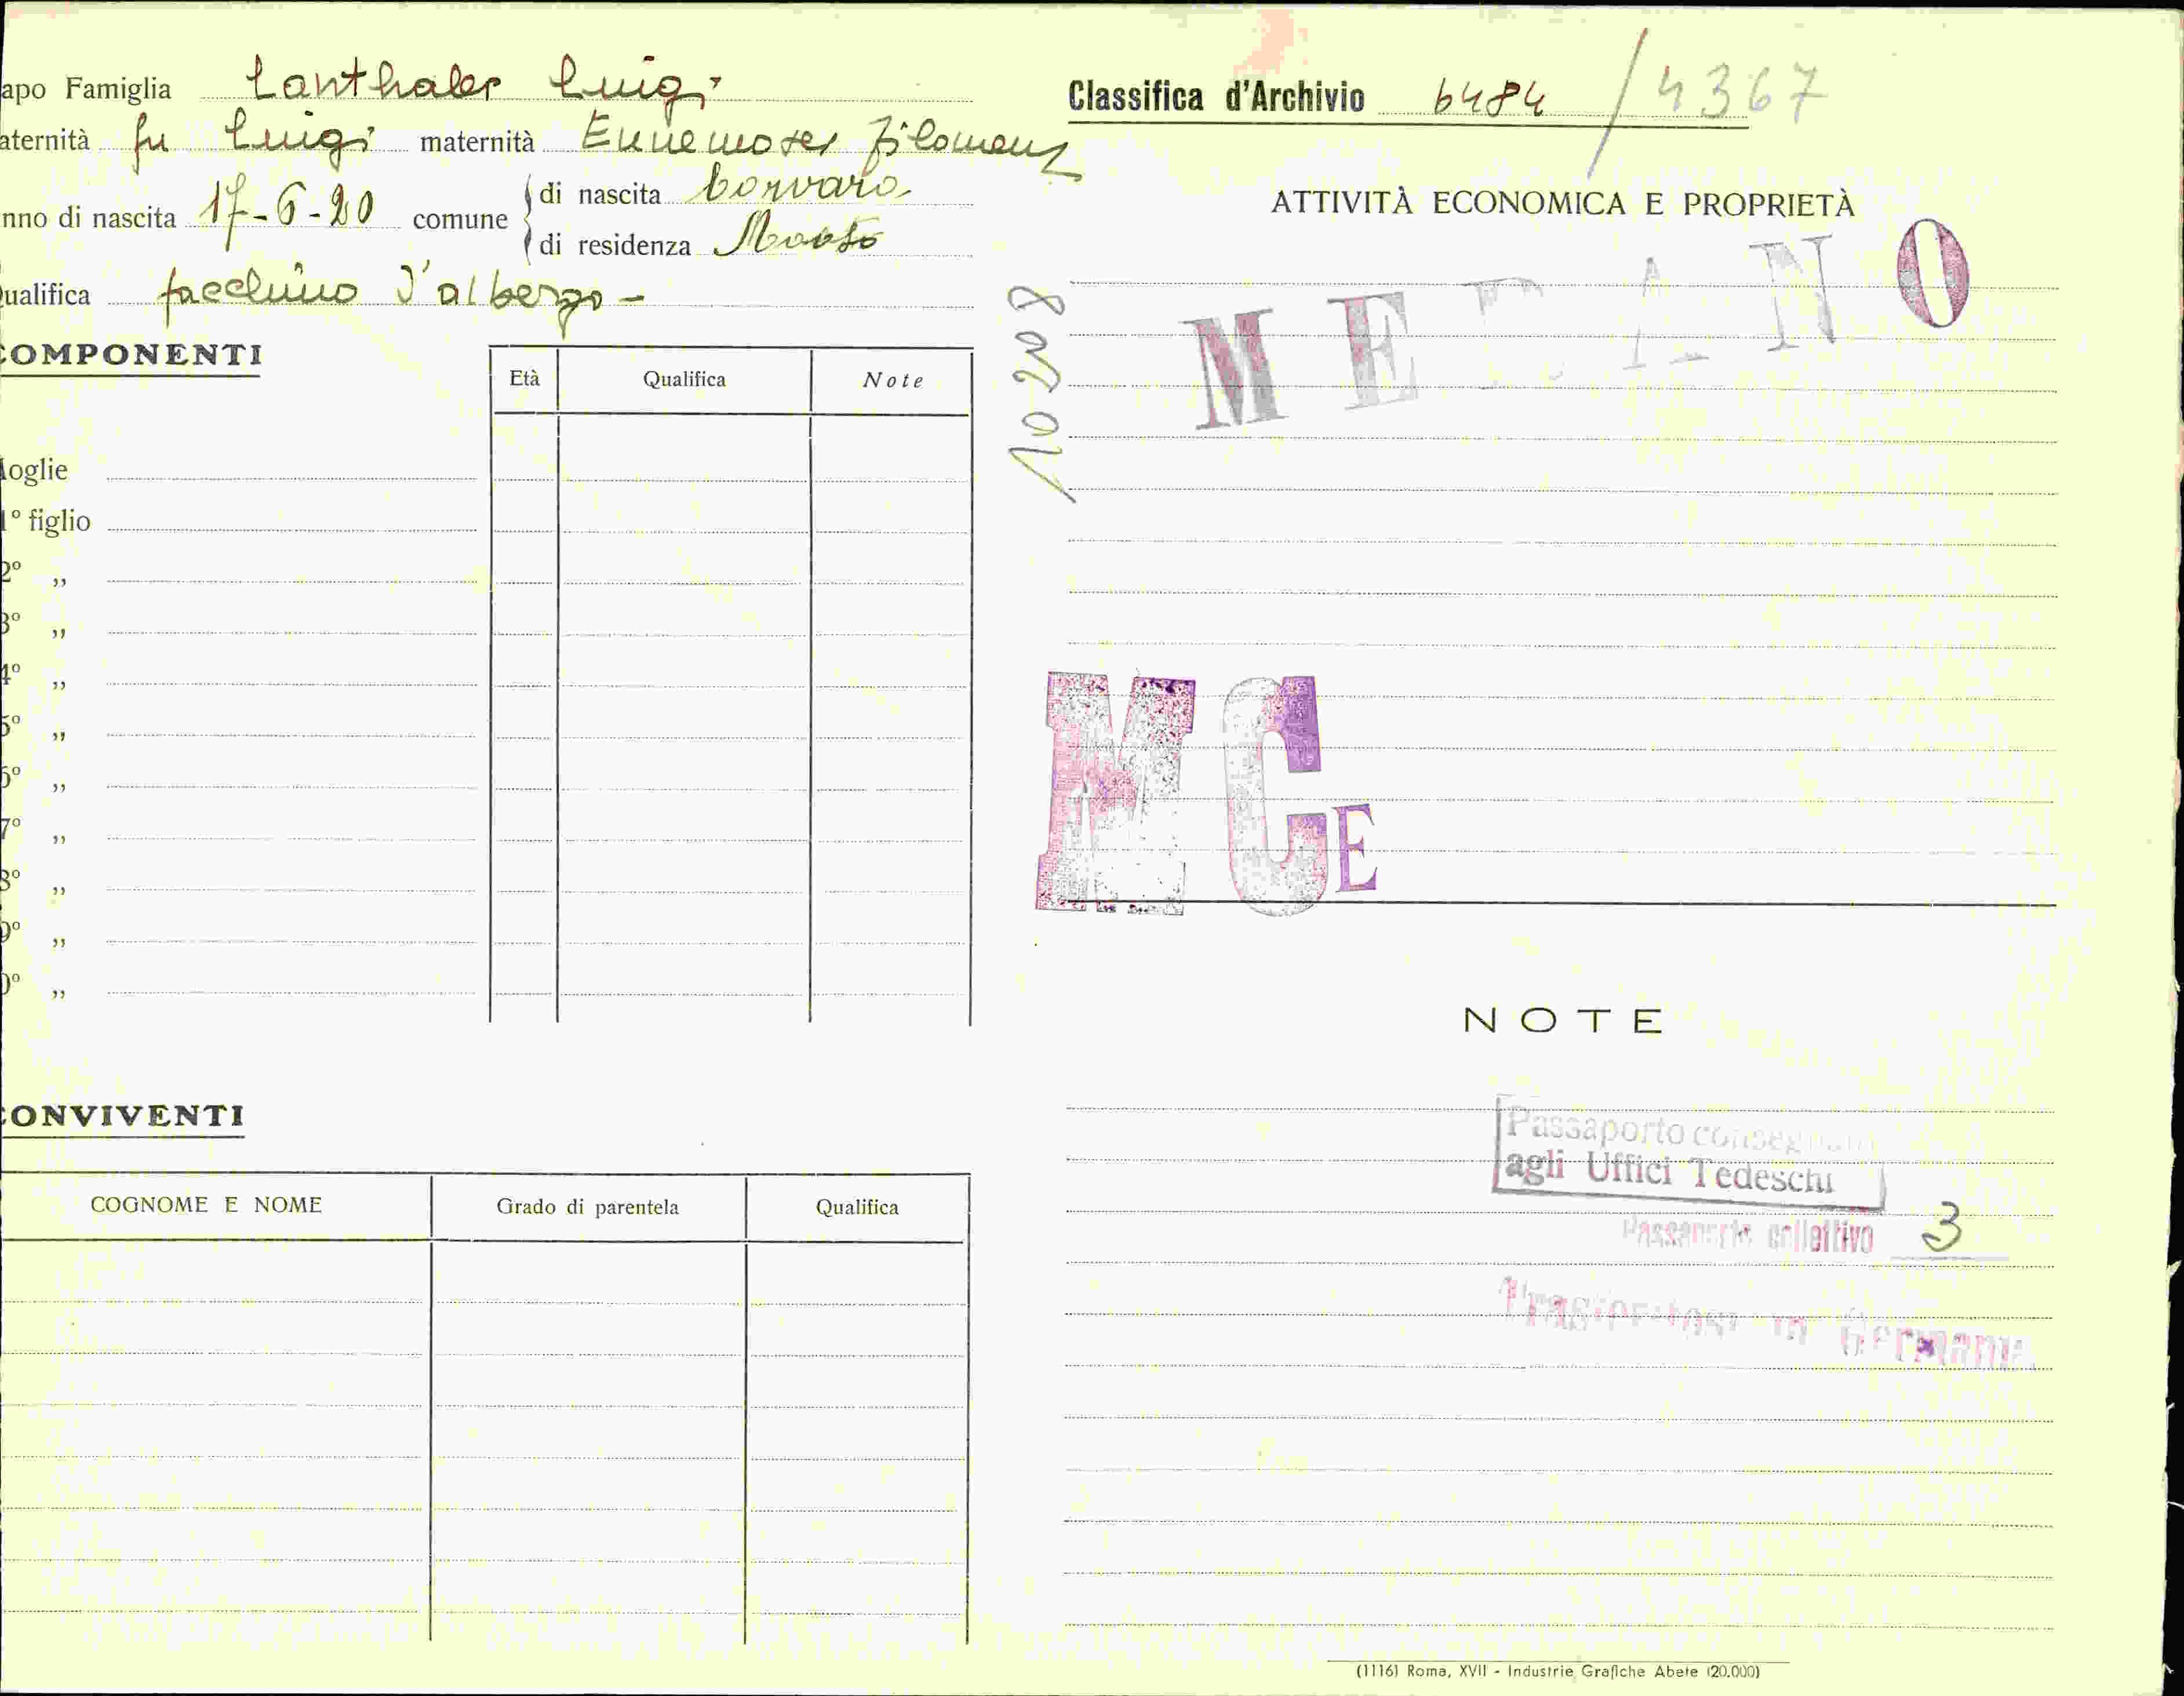 apo Famiglia Lanthaler Luigi
aternità fu Luigi maternità Ennemoser Filomena
nno di nascita 17-6-20 comune di nascita Corvara
di residenza Moso
ualifica facchino d'albergo -
COMPONENTI
Età Qualifica Note
Moglie
1° figlio
2° „
3° „
4° „
5° „
6° „
7° „
8° „
9° „
0° „
CONVIVENTI
COGNOME E NOME Grado di parentela Qualifica
Classifica d'Archivio 6484 / 4367
ATTIVITÀ ECONOMICA E PROPRIETÀ
MERANO
10208
MCE
NOTE
Passaporto consegnato
agli Uffici Tedeschi
Passaporto collettivo 3
Trasferitosi in Germania
(1116) Roma, XVII - Industrie Grafiche Abete (20.000)